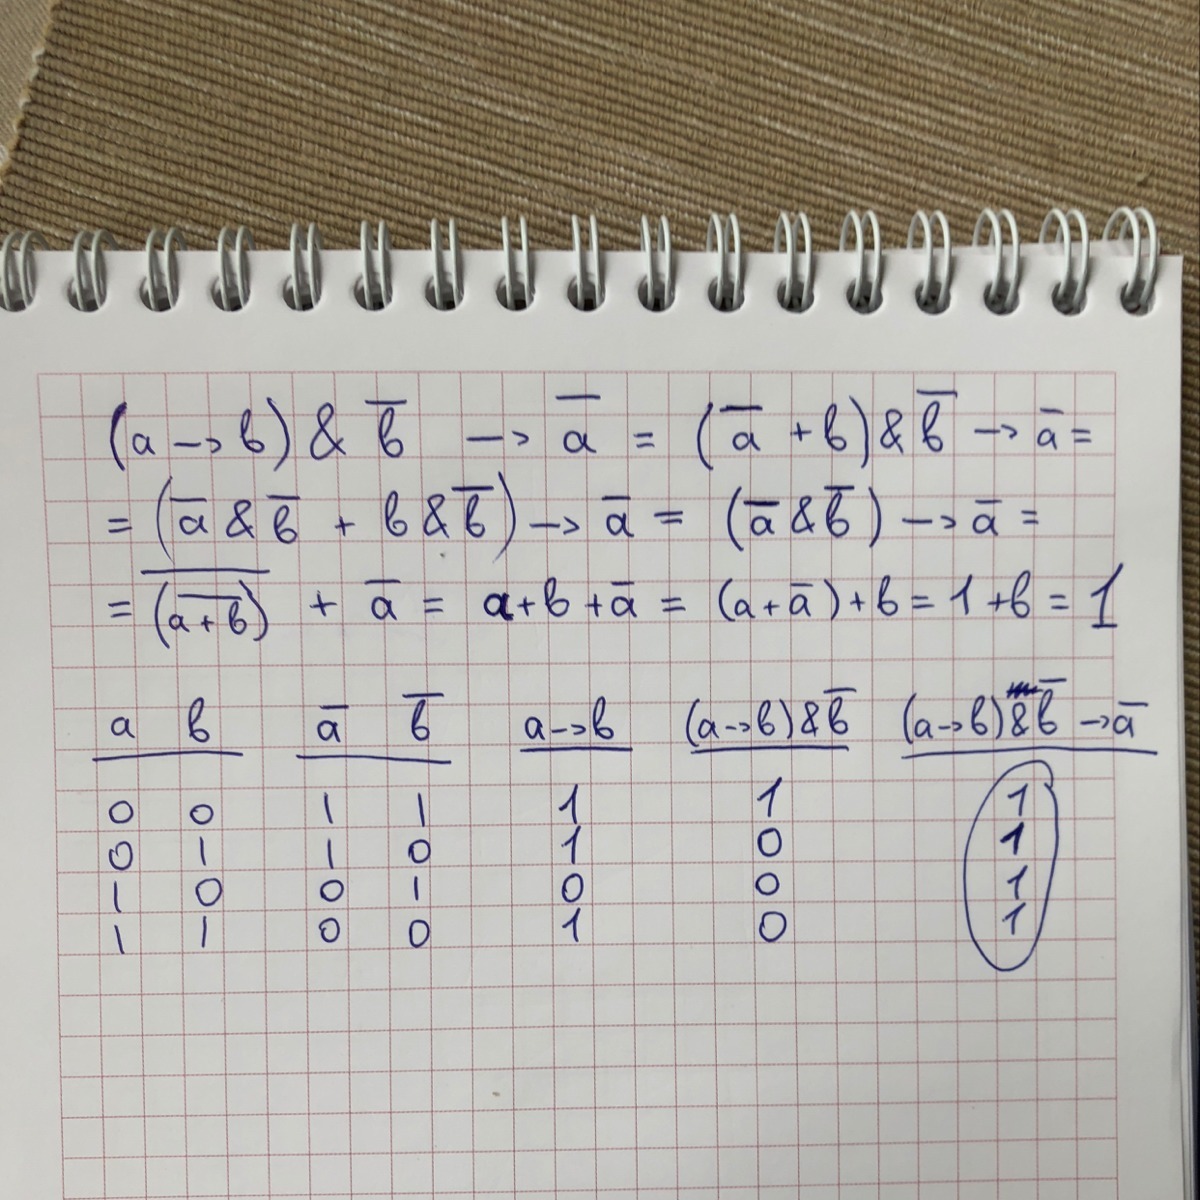 (a → b) & b̅ → a̅ = (a̅ + b) & b̅ → a̅ =
= (a̅ & b̅ + b & b̅) → a̅ = (a̅ & b̅) → a̅ =
= \overline{(\overline{a + b})} + a̅ = a + b + a̅ = (a + a̅) + b = 1 + b = 1
a b a̅ b̅ a → b (a → b) & b̅ (a → b) & b̅ → a̅
0 0 1 1 1 1 1
0 1 1 0 1 0 1
1 0 0 1 0 0 1
1 1 0 0 1 0 1